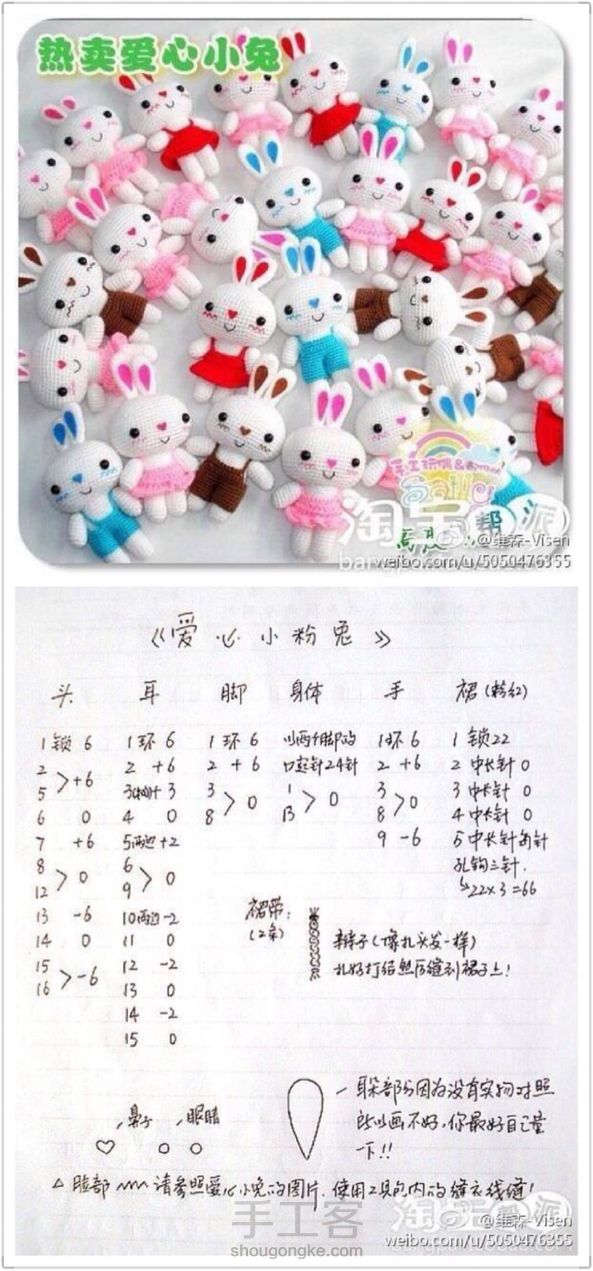 热卖爱心小兔
淘宝帮派
@维森-Visen
weibo.com/u/5050476355
《爱心小粉兔》
头 耳 脚 身体 手 裙(粉红)
1锁 6 1环 6 1环 6 以两个脚的 1环 6 1 锁22
2 2 +6 2 +6 口起针24针 2 +6 2 中长针 0
> +6
5 3 +3 3 1 3 3 中长针 0
> 0 > 0 > 0
6 0 4 0 8 13 8 4 中长针 0
7 +6 5两边+2 9 -6 5 中长针 每针
8 6 孔钩三针.
> 0 > 0
12 9 ↳22×3=66
13 -6 10两边-2 裙带:
14 0 11 0 (2条) 辫子(像扎头发一样)
15 12 -2 扎好打结然后缝到裙子上!
> -6
16 13 0
14 -2
15 0
耳朵部分因为没有实物对照
鼻子 眼睛 所以画不好,你最好自己量
一下!!
△ 脸部 请参照爱心小兔的图片,使用工具包内的缝衣线缝!
淘宝帮派
手工客
shougongke.com
@维森-Visen
weibo.com/u/5050476355